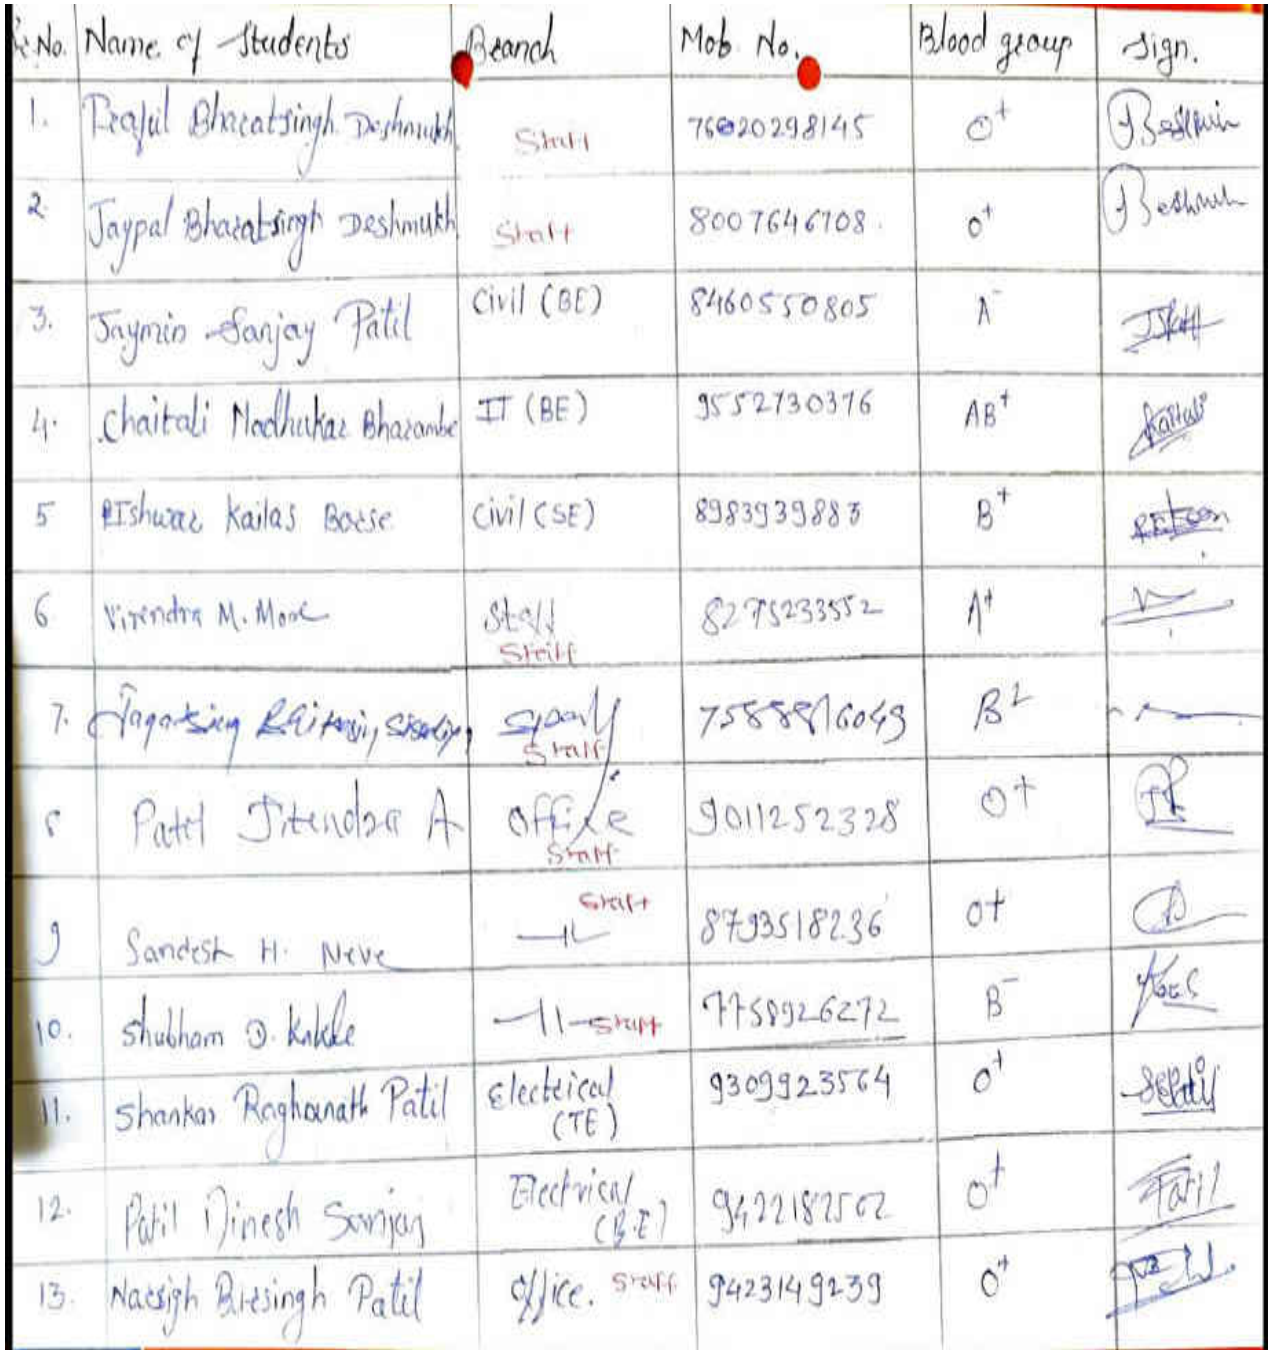 Sr. No. Name of Students Branch Mob. No. Blood group Sign.
1. Praful Bharatsingh Deshmukh Staff 7620298145 O+
2. Jaypal Bharatsingh Deshmukh Staff 8007646708. O+
3. Jaymin Sanjay Patil Civil (BE) 8460550805 A-
4. Chaitali Madhukar Bharambe IT (BE) 9552730376 AB+
5 Ishwar Kailas Borse Civil (SE) 8983939883 B+
6 Virendra M. More Staff 8275233552 A+
Staff
7. 7588816049
Staff
8 Patil Jitendra A Office 9011252328 O+
Staff
Staff
9 Sandesh H. Neve —||— 8793518236 O+
10. Shubham D. —||— Staff 7758926272 B-
11. Shankar Raghunath Patil Electrical 9309923564 O+
(TE)
12. Patil Dinesh Sanjay Electrical 9422182562 O+ Patil
(B.E)
13. Narsigh Birsingh Patil Office. Staff 9423149239 O+